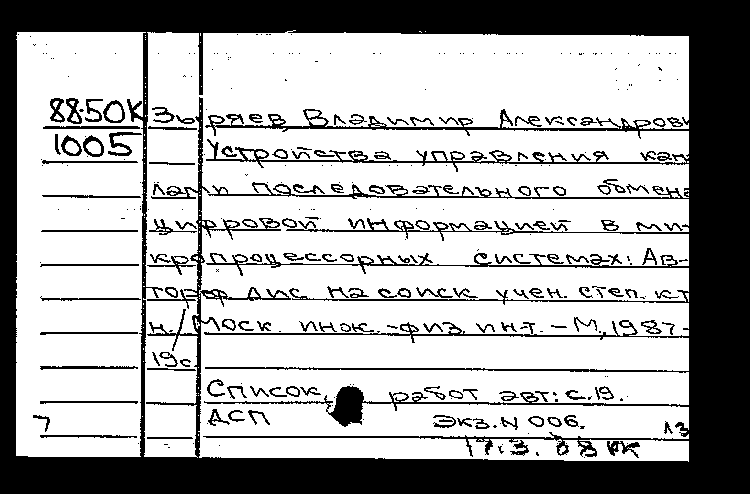 88-50К Зыряев, Владимир Александрови
1005 Устройства управления кан
лами последовательного обмена
цифровой информацией в ми-
кропроцессорных системах: Ав-
тореф дис. на соиск учен. степ. к.т.
н. Моск. инж.-физ. инт. - М, 1987-
19с.
Список работ авт: с. 19.
ДСП Экз. N 006. 13
7 17.3. 88